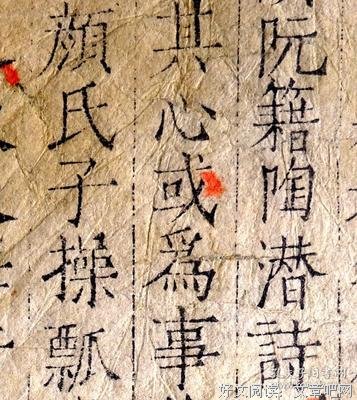 阮籍陶潛詩
其心或爲事
顏氏子操瓢
好文阅读：文章吧网